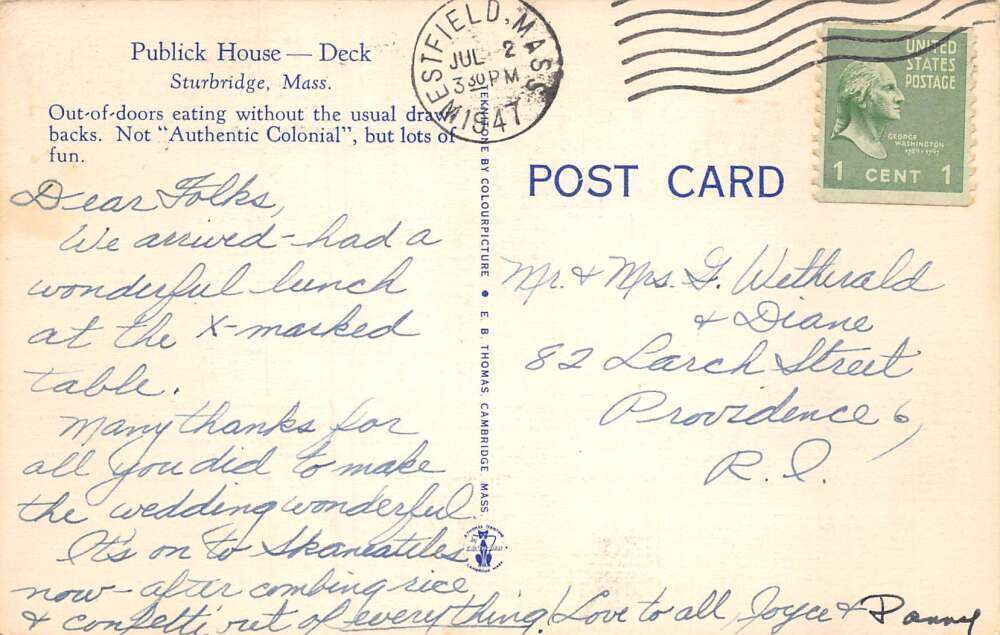 Publick House — Deck
Sturbridge, Mass.
Out-of-doors eating without the usual draw-
backs. Not "Authentic Colonial", but lots of
fun.
Dear Folks,
We arrived - had a
wonderful lunch
at the X-marked
table.
Many thanks for
all you did to make
the wedding wonderful.
It's on to Skaneatiles
now - after combing rice
& confetti out of everything! Love to all, Joyce &
WESTFIELD, MASS
JUL 2
3 30 PM
1947
TEKNITONE BY COLOURPICTURE • E. B. THOMAS, CAMBRIDGE, MASS.
POST CARD
UNITED
STATES
POSTAGE
GEORGE
WASHINGTON
1789-1797
1 CENT 1
Mr. & Mrs. G. Witherald
& Diane
82 Larch Street
Providence 6,
R.I.